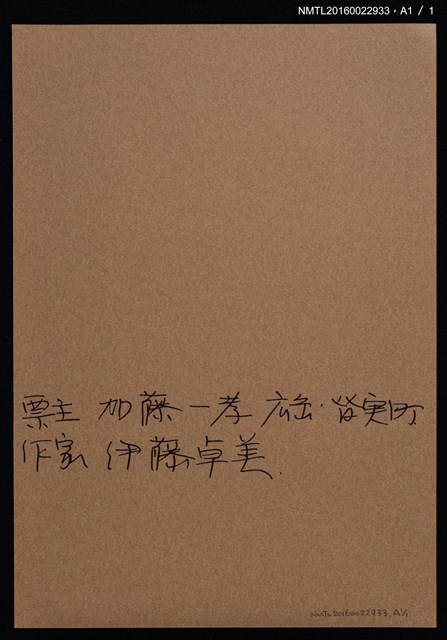 NMTL20160022933，A1 / 1
票主 加藤一孝 広島·皆実町
作家 伊藤卓美.
NMTL20160022933, A1/1